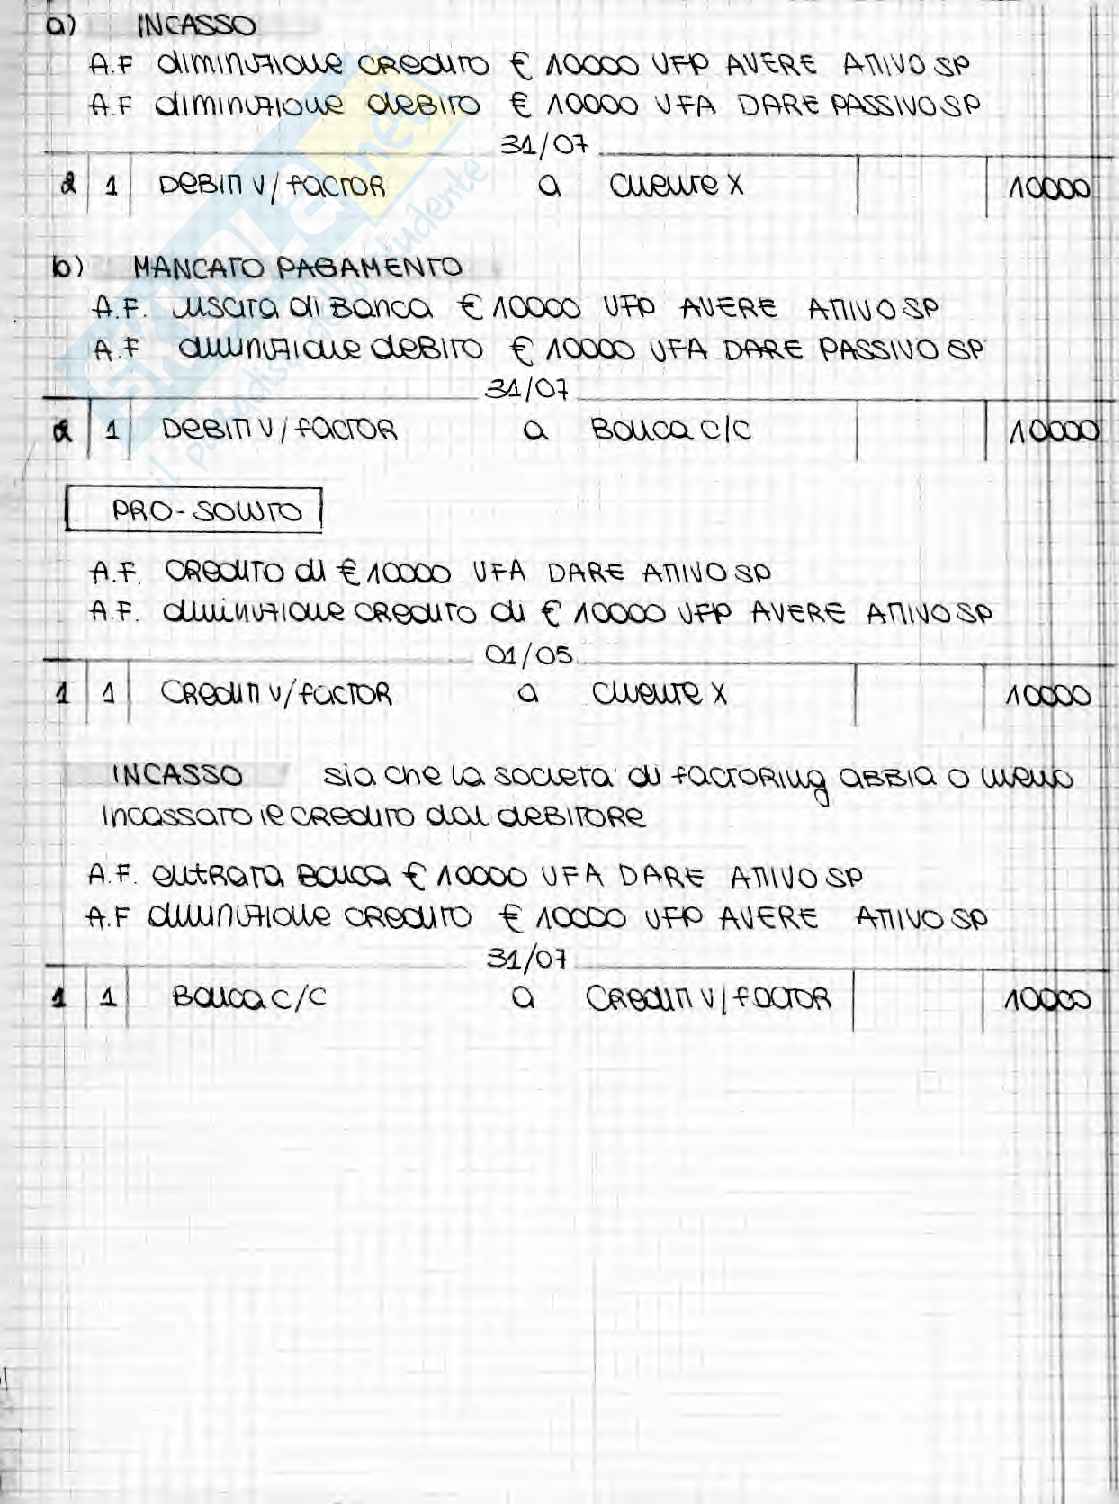 a) INCASSO
A.F diminuzione credito € 10000 VFP AVERE ATTIVO SP
A.F diminuzione debito € 10000 VFA DARE PASSIVO SP
31/07
2 1 Debiti v/factor a cliente X 10000
b) MANCATO PAGAMENTO
A.F. uscita di Banca € 10000 VFP AVERE ATTIVO SP
A.F diminuzione debito € 10000 VFA DARE PASSIVO SP
31/07
2 1 Debiti v/factor a Banca c/c 10000
PRO-SOLUTO
A.F. credito di € 10000 VFA DARE ATTIVO SP
A.F. diminuzione credito di € 10000 VFP AVERE ATTIVO SP
01/05
1 1 Crediti v/factor a cliente X 10000
INCASSO sia che la società di factoring abbia o meno
incassato il credito dal debitore
A.F. entrata Banca € 10000 VFA DARE ATTIVO SP
A.F diminuzione credito € 10000 VFP AVERE ATTIVO SP
31/07
1 1 Banca c/c a Crediti v/factor 10000